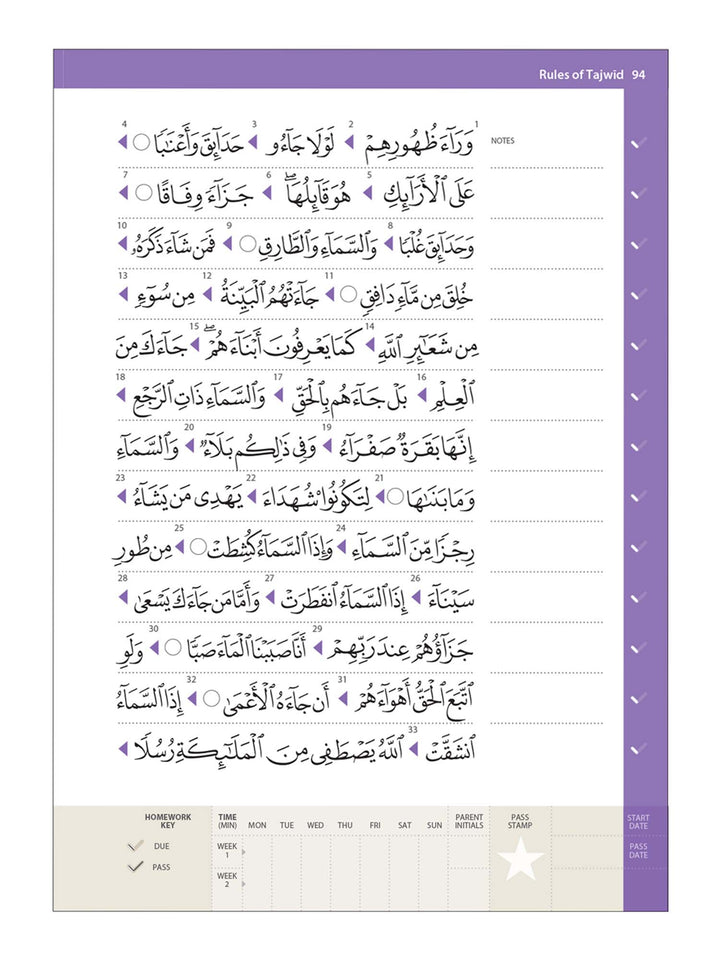 Rules of Tajwid 94
1 وَرَآءَ ظُهُورِهِمْ 2 لَوْلَا جَآءُو 3 حَدَآئِقَ وَأَعْنَٰبًا 4
NOTES
عَلَى ٱلْأَرَآئِكِ 5 هُوَ قَآئِلُهَا ۖ 6 جَزَآءً وِفَاقًا 7
وَحَدَآئِقَ غُلْبًا 8 وَٱلسَّمَآءِ وَٱلطَّارِقِ 9 فَمَن شَآءَ ذَكَرَهُۥ 10
خُلِقَ مِن مَّآءٍ دَافِقٍ 11 جَآءَتْهُمُ ٱلْبَيِّنَةُ 12 مِن سُوٓءٍ 13
مِن شَعَآئِرِ ٱللَّهِ 14 كَمَا يَعْرِفُونَ أَبْنَآءَهُمْ ۖ 15 جَآءَكَ مِنَ
ٱلْعِلْمِ 16 بَلْ جَآءَهُم بِٱلْحَقِّ 17 وَٱلسَّمَآءِ ذَاتِ ٱلرَّجْعِ 18
إِنَّهَا بَقَرَةٌ صَفْرَآءُ 19 وَفِى ذَٰلِكُم بَلَآءٌ 20 وَٱلسَّمَآءِ
وَمَا بَنَىٰهَا 21 لِتَكُونُوا۟ شُهَدَآءَ 22 يَهْدِى مَن يَشَآءُ 23
رِجْزًا مِّنَ ٱلسَّمَآءِ 24 وَإِذَا ٱلسَّمَآءُ كُشِطَتْ 25 مِن طُورِ
سَيْنَآءَ 26 إِذَا ٱلسَّمَآءُ ٱنفَطَرَتْ 27 وَأَمَّا مَن جَآءَكَ يَسْعَىٰ 28
جَزَآؤُهُمْ عِندَ رَبِّهِمْ 29 أَنَّا صَبَبْنَا ٱلْمَآءَ صَبًّا 30 وَلَوِ
ٱتَّبَعَ ٱلْحَقُّ أَهْوَآءَهُمْ 31 أَن جَآءَهُ ٱلْأَعْمَىٰ 32 إِذَا ٱلسَّمَآءُ
ٱنشَقَّتْ 33 ٱللَّهُ يَصْطَفِى مِنَ ٱلْمَلَٰٓئِكَةِ رُسُلًا
HOMEWORK KEY
DUE
PASS
TIME (MIN) MON TUE WED THU FRI SAT SUN PARENT INITIALS PASS STAMP
WEEK 1
WEEK 2
START DATE
PASS DATE